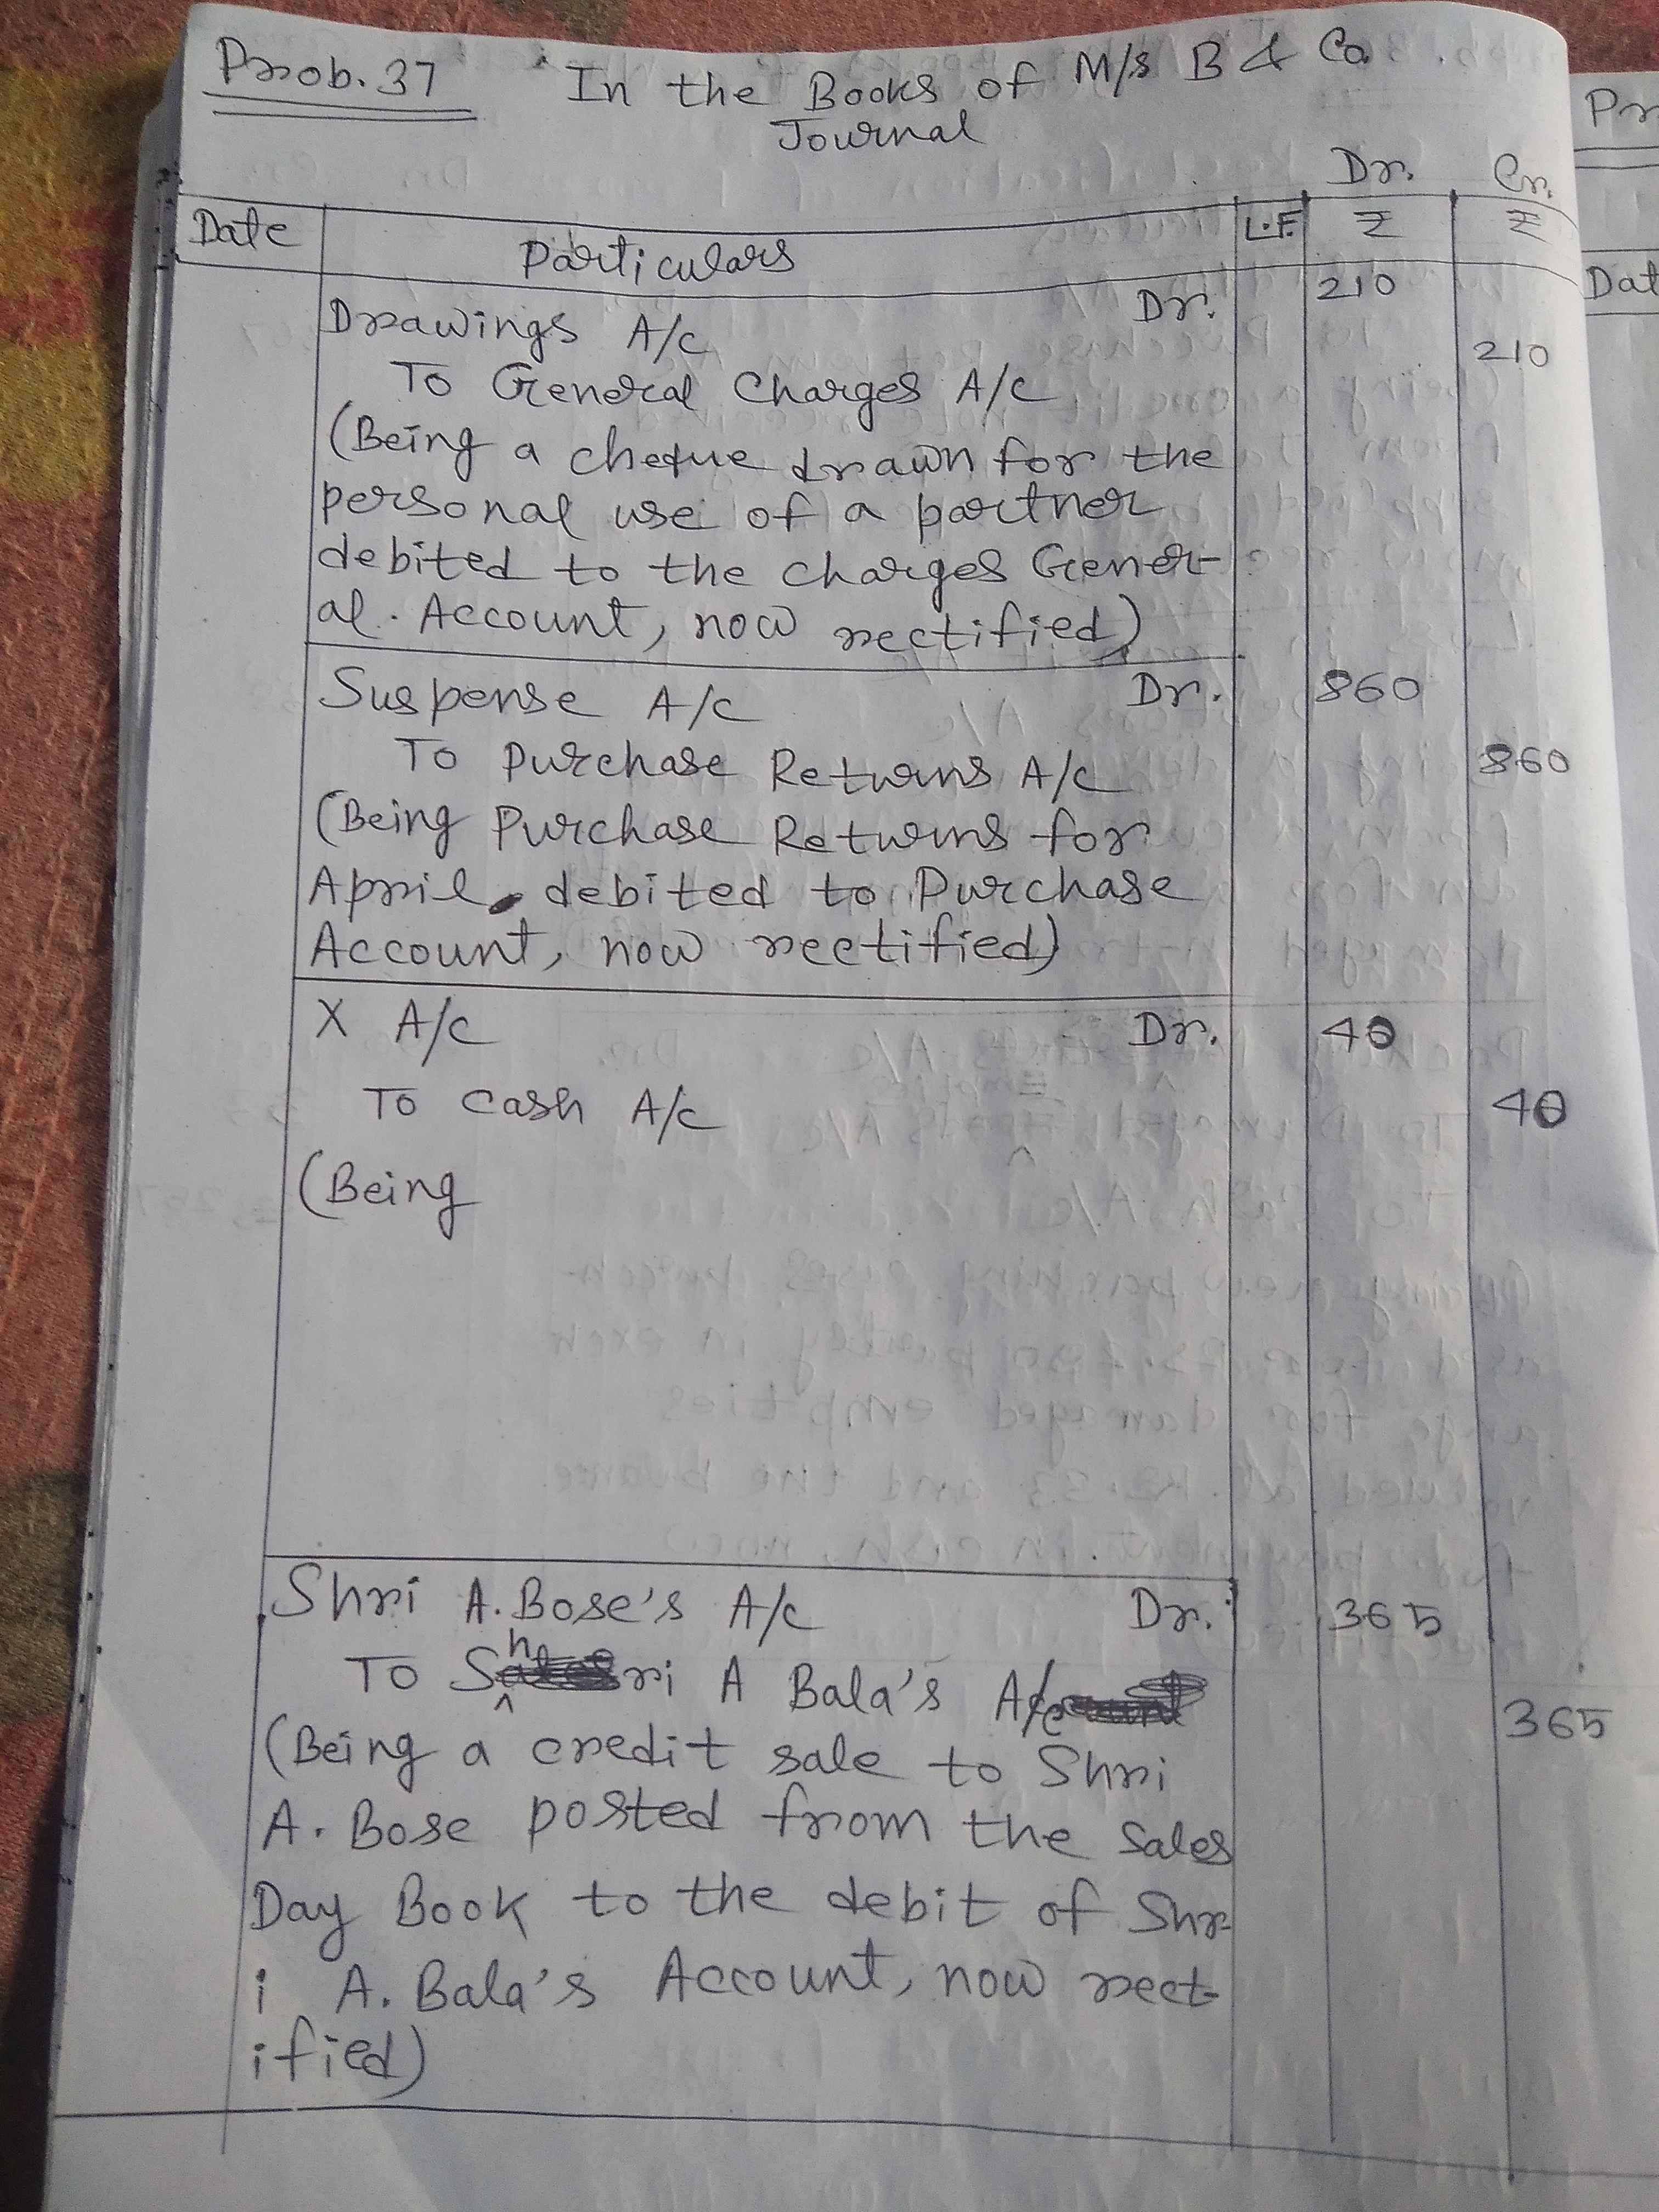 Prob. 37 In the Books of M/s B & Co.
Journal
Dr. Cr.
Date Particulars L.F. ₹ ₹
Drawings A/c Dr. 210
To General Charges A/c 210
(Being a cheque drawn for the
personal use of a partner
debited to the charges Gener-
al. Account, now rectified)
Suspense A/c Dr. 860
To Purchase Returns A/c 860
(Being Purchase Returns for
April debited to Purchase
Account, now rectified)
X A/c Dr. 40
To Cash A/c 40
(Being
Shri A. Bose's A/c Dr. 365
To Shri A Bala's A/c 365
(Being a credit sale to Shri
A. Bose posted from the Sales
Day Book to the debit of Shr-
i A. Bala's Account, now rect-
ified)
Pr
Dat